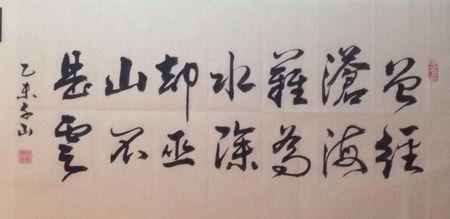 曾經
滄海
難為
水除
却巫
山不
是雲
乙未千山